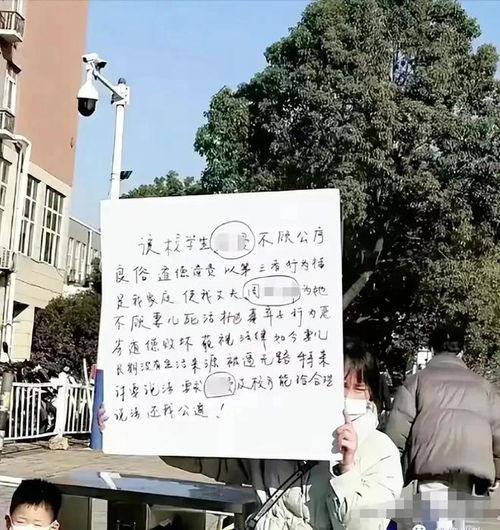 该校学生 不顾公序
良俗 道德 以第三者行为插
足我家庭 使我丈夫周 为她
不顾妻儿死活抛 弃 行为恶
劣道德败坏 藐视法律 如今妻儿
长期没有生活来源 被逼无路 特来
讨要说法 要求 及校方能给合理
说法还我公道！